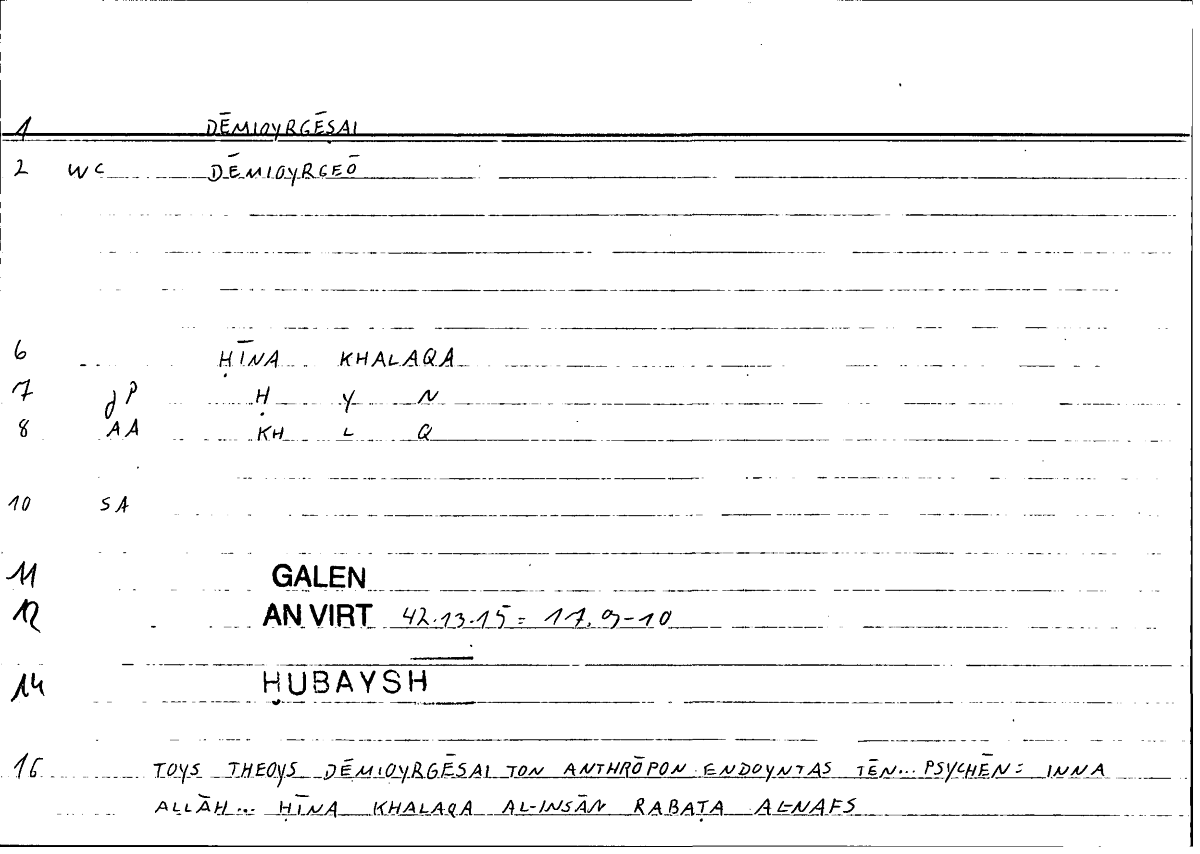 1 DĒMIOYRGĒSAI
2 WC DĒMIOYRGEŌ
6 ḤĪNA KHALAQA
7 JP Ḥ Y N
8 AA KH L Q
10 SA
11 GALEN
12 AN VIRT 42.13-15 = 17, 9-10
14 ḤUBAYSH
16 TOYS THEOYS DĒMIOYRGĒSAI TON ANTHRŌPON ENDOYNTAS TĒN... PSYCHĒN: INNA
ALLĀH... ḤĪNA KHALAQA AL-INSĀN RABAṬA AL-NAFS